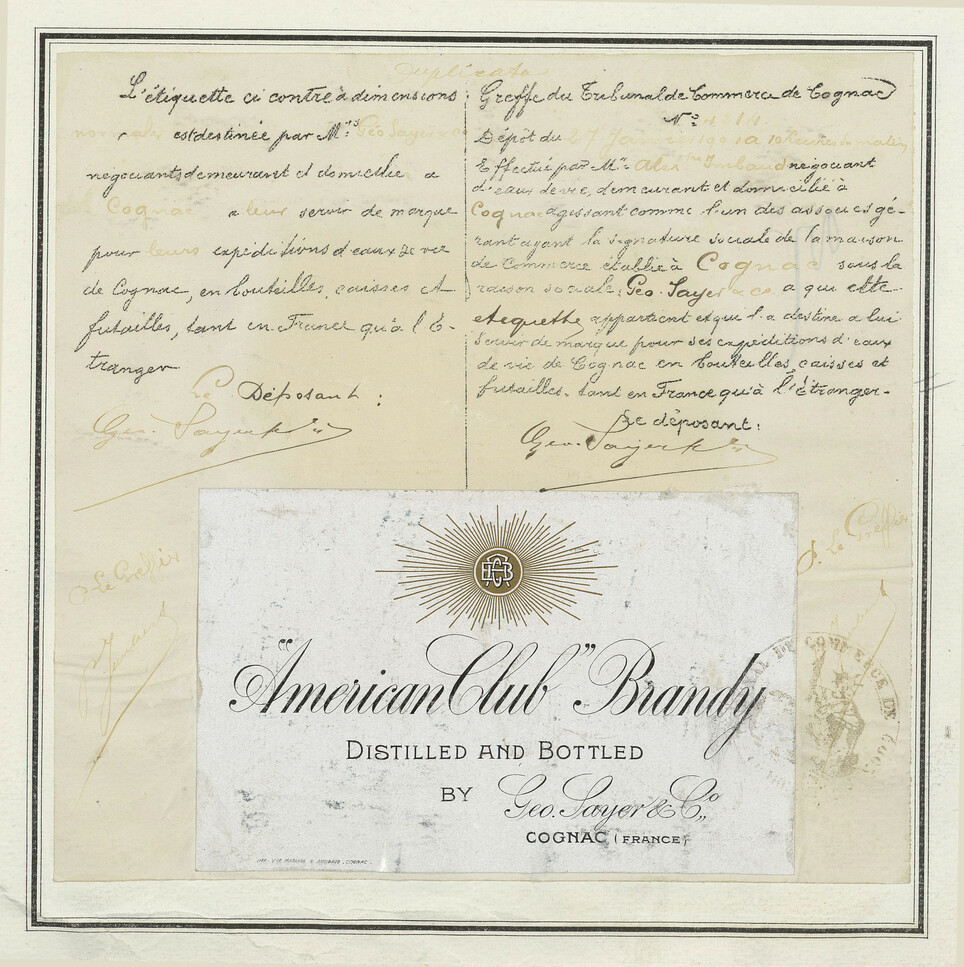 Duplicata
L'étiquette ci contre à dimensions
normales est destinée par Mrs Geo Sayer & Co
négociants demeurant et domiciliés à
Cognac à leur servir de marque
pour leurs expéditions d'eaux de vie
de Cognac, en bouteilles, caisses et
futailles, tant en France qu'à l'É-
tranger
Le Déposant :
Geo. Sayer & Co
Greffe du Tribunal de Commerce de Cognac
No
Dépôt du 27 à 10 heures du matin
Effectué par Mr négociant
d'eaux de vie, demeurant et domicilié à
Cognac agissant comme l'un des associés gé-
rant ayant la signature sociale de la maison
de Commerce établie à Cognac sous la
raison sociale: Geo. Sayer & Co à qui cette
etiquette appartient et qui l'a destine a lui
servir de marque pour ses expéditions d'eaux
de vie de Cognac en bouteilles, caisses et
futailles, tant en France qu'à l'Étranger-
Le déposant:
Geo. Sayer & Co
Le Greffier
Le Greffier
"American Club" Brandy
DISTILLED AND BOTTLED
BY Geo. Sayer & Co.,
COGNAC (FRANCE)